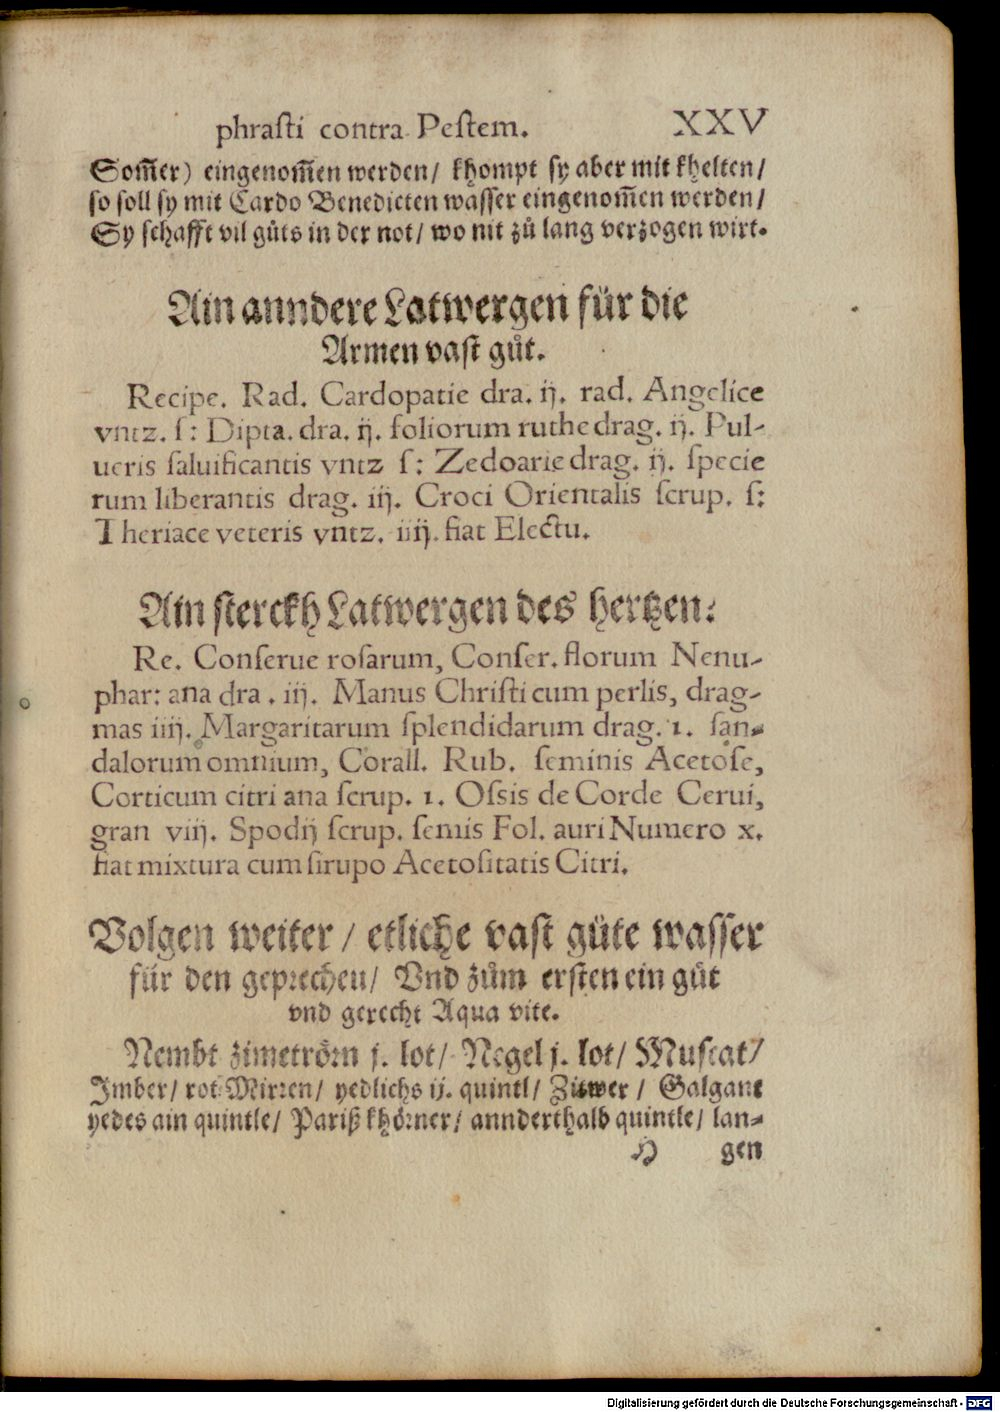 phraſti contra Peſtem. XXV
Som̃er) eingenom̃en werden/ khompt ſy aber mit khelten/
ſo ſoll ſy mit Cardo Benedicten waſſer eingenom̃en werden/
Sy ſchafft vil gůts in der not/ wo nit zů lang verzogen wirt.
Ain anndere Latwergen für die
Armen vaſt gůt.
Recipe. Rad. Cardopatie dra. ij. rad. Angelice
vntz. ſ: Dipta. dra. ij. foliorum ruthe drag. ij. Pul-
ueris ſaluificantis vntz ſ: Zedoarie drag. ij. ſpecie
rum liberantis drag. iij. Croci Orientalis ſcrup. ſ:
Theriace veteris vntz. iiij. fiat Electu.
Ain ſterckh Latwergen des hertzen:
Re. Conſerue roſarum, Conſer. florum Nenu-
phar: ana dra. iij. Manus Chriſti cum perlis, drag-
mas iiij. Margaritarum ſplendidarum drag. 1. ſan-
dalorum omnium, Corall. Rub. ſeminis Acetoſe,
Corticum citri ana ſcrup. 1. Oſsis de Corde Cerui,
gran viij. Spodij ſcrup. ſemis Fol. auri Numero x.
fiat mixtura cum ſirupo Acetoſitatis Citri.
Volgen weiter / etliche vaſt gůte waſſer
für den geprechen/ Vnd zům erſten ein gůt
vnd gerecht Aqua vite.
Nembt zimetrörn j. lot/ Negel j. lot/ Muſcat/
Imber/ rot Mirren/ yedlichs ij. quintl/ Zitwer / Galgant
yedes ain quintle/ Pariß khörner/ anderthalb quintle/ lan-
H gen
Digitalisierung gefördert durch die Deutsche Forschungsgemeinschaft - DFG